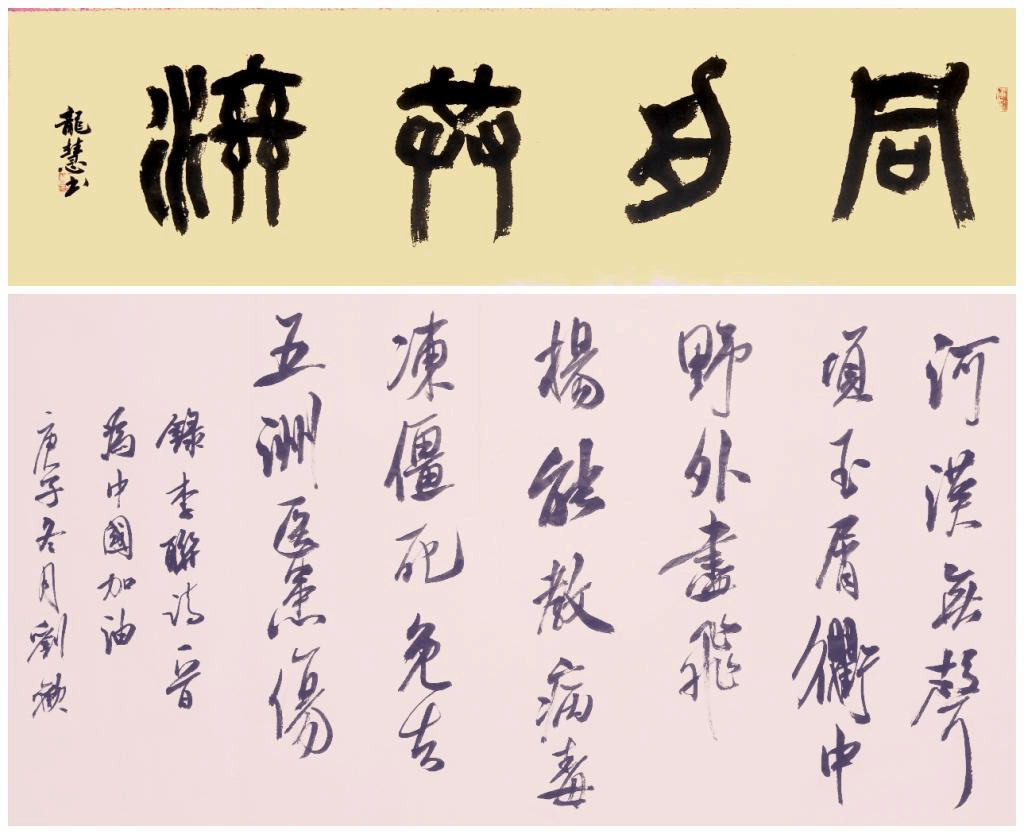 同舟共濟
龍慧书
河漢無聲
頃玉屑衢中
野外盡飛
揚能教病毒
凍僵死免去
五洲医患傷
錄李聯詩一首
為中國加油
庚子冬月劉